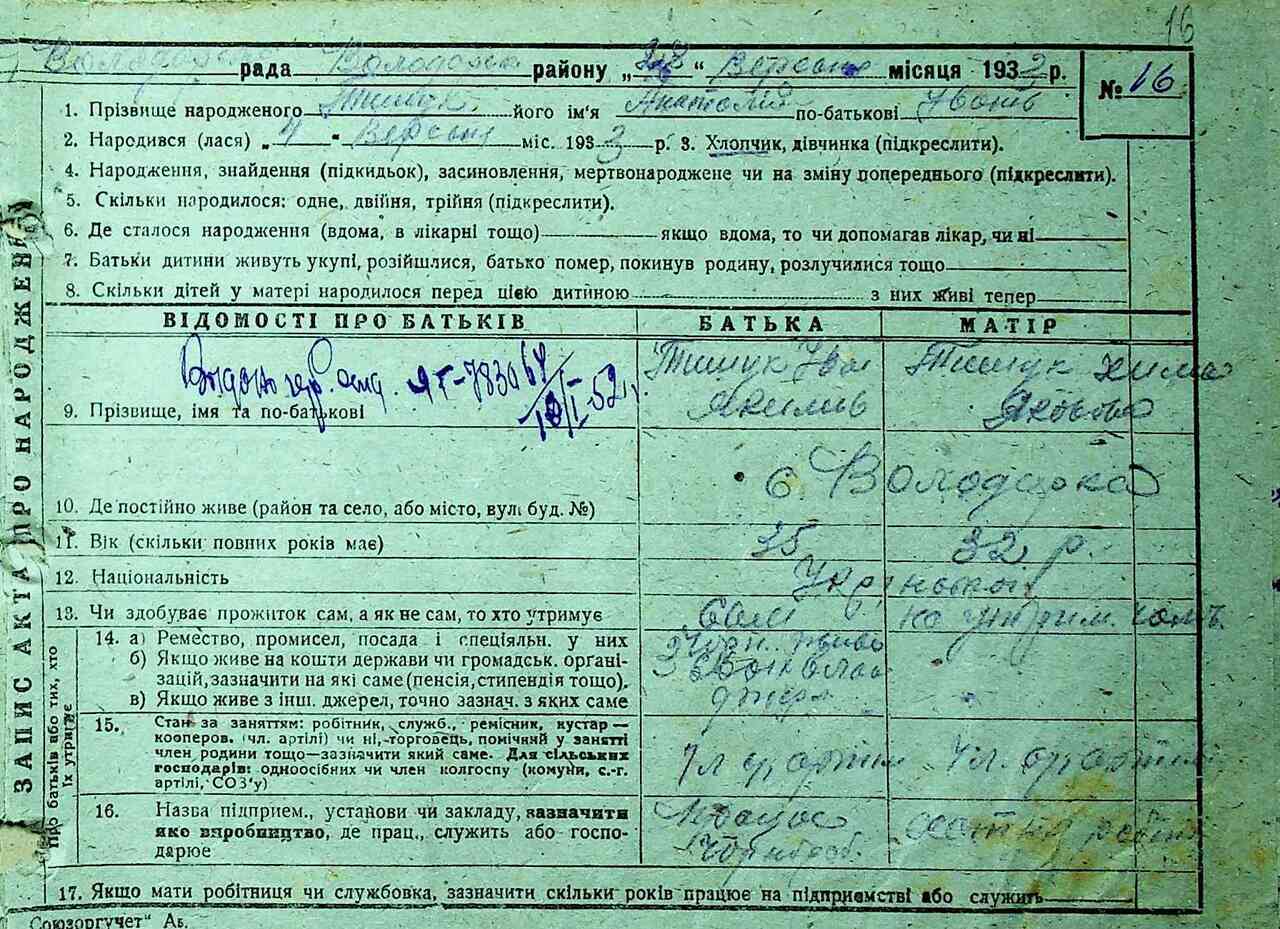 16
Володарська рада Володарськ району „28“ Вересня місяця 1933 р.
№ 16
1. Прізвище народженого Тищук його ім'я Анатолій по-батькові Іванів
2. Народився (лася) „4“ Вересня міс. 1933 р. 3. Хлопчик, дівчинка (підкреслити).
4. Народження, знайдення (підкидьок), засиновлення, мертвонароджене чи на зміну попереднього (підкреслити).
5. Скільки народилося: одне, двійня, трійня (підкреслити).
6. Де сталося народження (вдома, в лікарні тощо) якщо вдома, то чи допомагав лікар, чи ні
7. Батьки дитини живуть укупі, розійшлися, батько помер, покинув родину, розлучилися тощо
8. Скільки дітей у матері народилося перед цією дитиною з них живі тепер
ЗАПИС АКТА ПРО НАРОДЖЕННЯ
ВІДОМОСТІ ПРО БАТЬКІВ БАТЬКА МАТІР
ЯГ-783064
І-52
Тищук Іван Тищук Хима
9. Прізвище, імя та по-батькові Якилив Яковова
с. Володарка
10. Де постійно живе (район та село, або місто, вул. буд. №)
11. Вік (скільки повних років має) 35 32 р.
12. Національність
13. Чи здобуває прожиток сам, а як не сам, то хто утримує сам на утрим. чолов.
Про батьків або тих, хто їх утримує
14. а) Ремество, промисел, посада і спеціяльн. у них
б) Якщо живе на кошти держави чи громадськ. органі-
зацій, зазначити на які саме (пенсія, стипендія тощо).
в) Якщо живе з інш. джерел, точно зазнач. з яких саме
15. Стан за заняттям: робітник, служб., ремісник, кустар —
кооперов. (чл. артілі) чи ні, торговець, помічний у занятті
член родини тощо—зазначити який саме. Для сільських
господарів: одноосібних чи член колгоспу (комуни, с.-г.
артілі, СОЗ'у)
16. Назва підприєм., установи чи закладу, зазначити
яко виробництво, де прац., служить або госпо-
дарює
17. Якщо мати робітниця чи службовка, зазначити скільки років працює на підприємстві або служить
Союзоргучет" Аб.